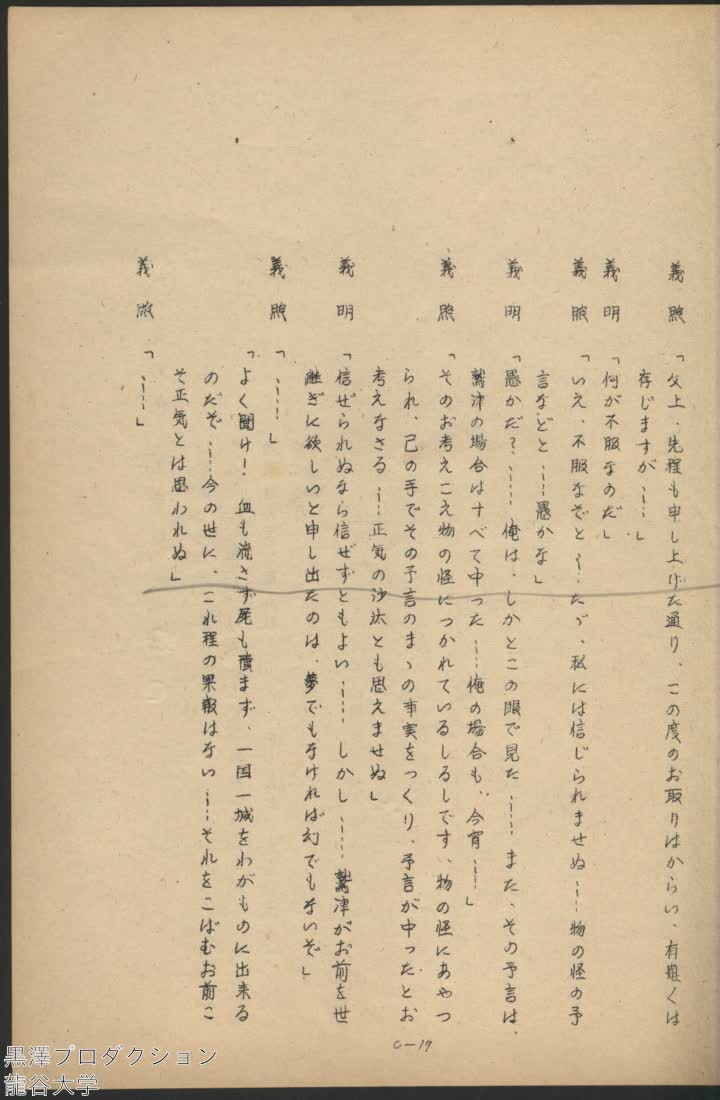 義照「父上、先程も申し上げた通り、この度のお取りはからい、有難くは
存じますが……」
義明「何が不服なのだ」
義照「いえ、不服なぞと……たゞ、私には信じられませぬ……物の怪の予
言などと……愚かな」
義明「愚かだ?……俺は、しかとこの眼で見た……また、その予言は、
鷲津の場合はすべて中った……俺の場合も、今宵……」
義照「そのお考えこえ物の怪につかれているしるしです、物の怪にあやつ
られ、己の手でその予言のまゝの事実をつくり、予言が中ったとお
考えなさる……正気の沙汰とも思えませぬ」
義明「信ぜられぬなら信ぜずともよい……しかし……鷲津がお前を世
継ぎに欲しいと申し出たのは、夢でもなければ幻でもないぞ」
義照「……」
「よく聞け!血も流さず屍も積まず、一国一城をわがものに出来る
のだぞ……今の世に、これ程の果報はない……それをこばむお前こ
そ正気とは思われぬ」
義照「……」
C-17
黒澤プロダクション
龍谷大学